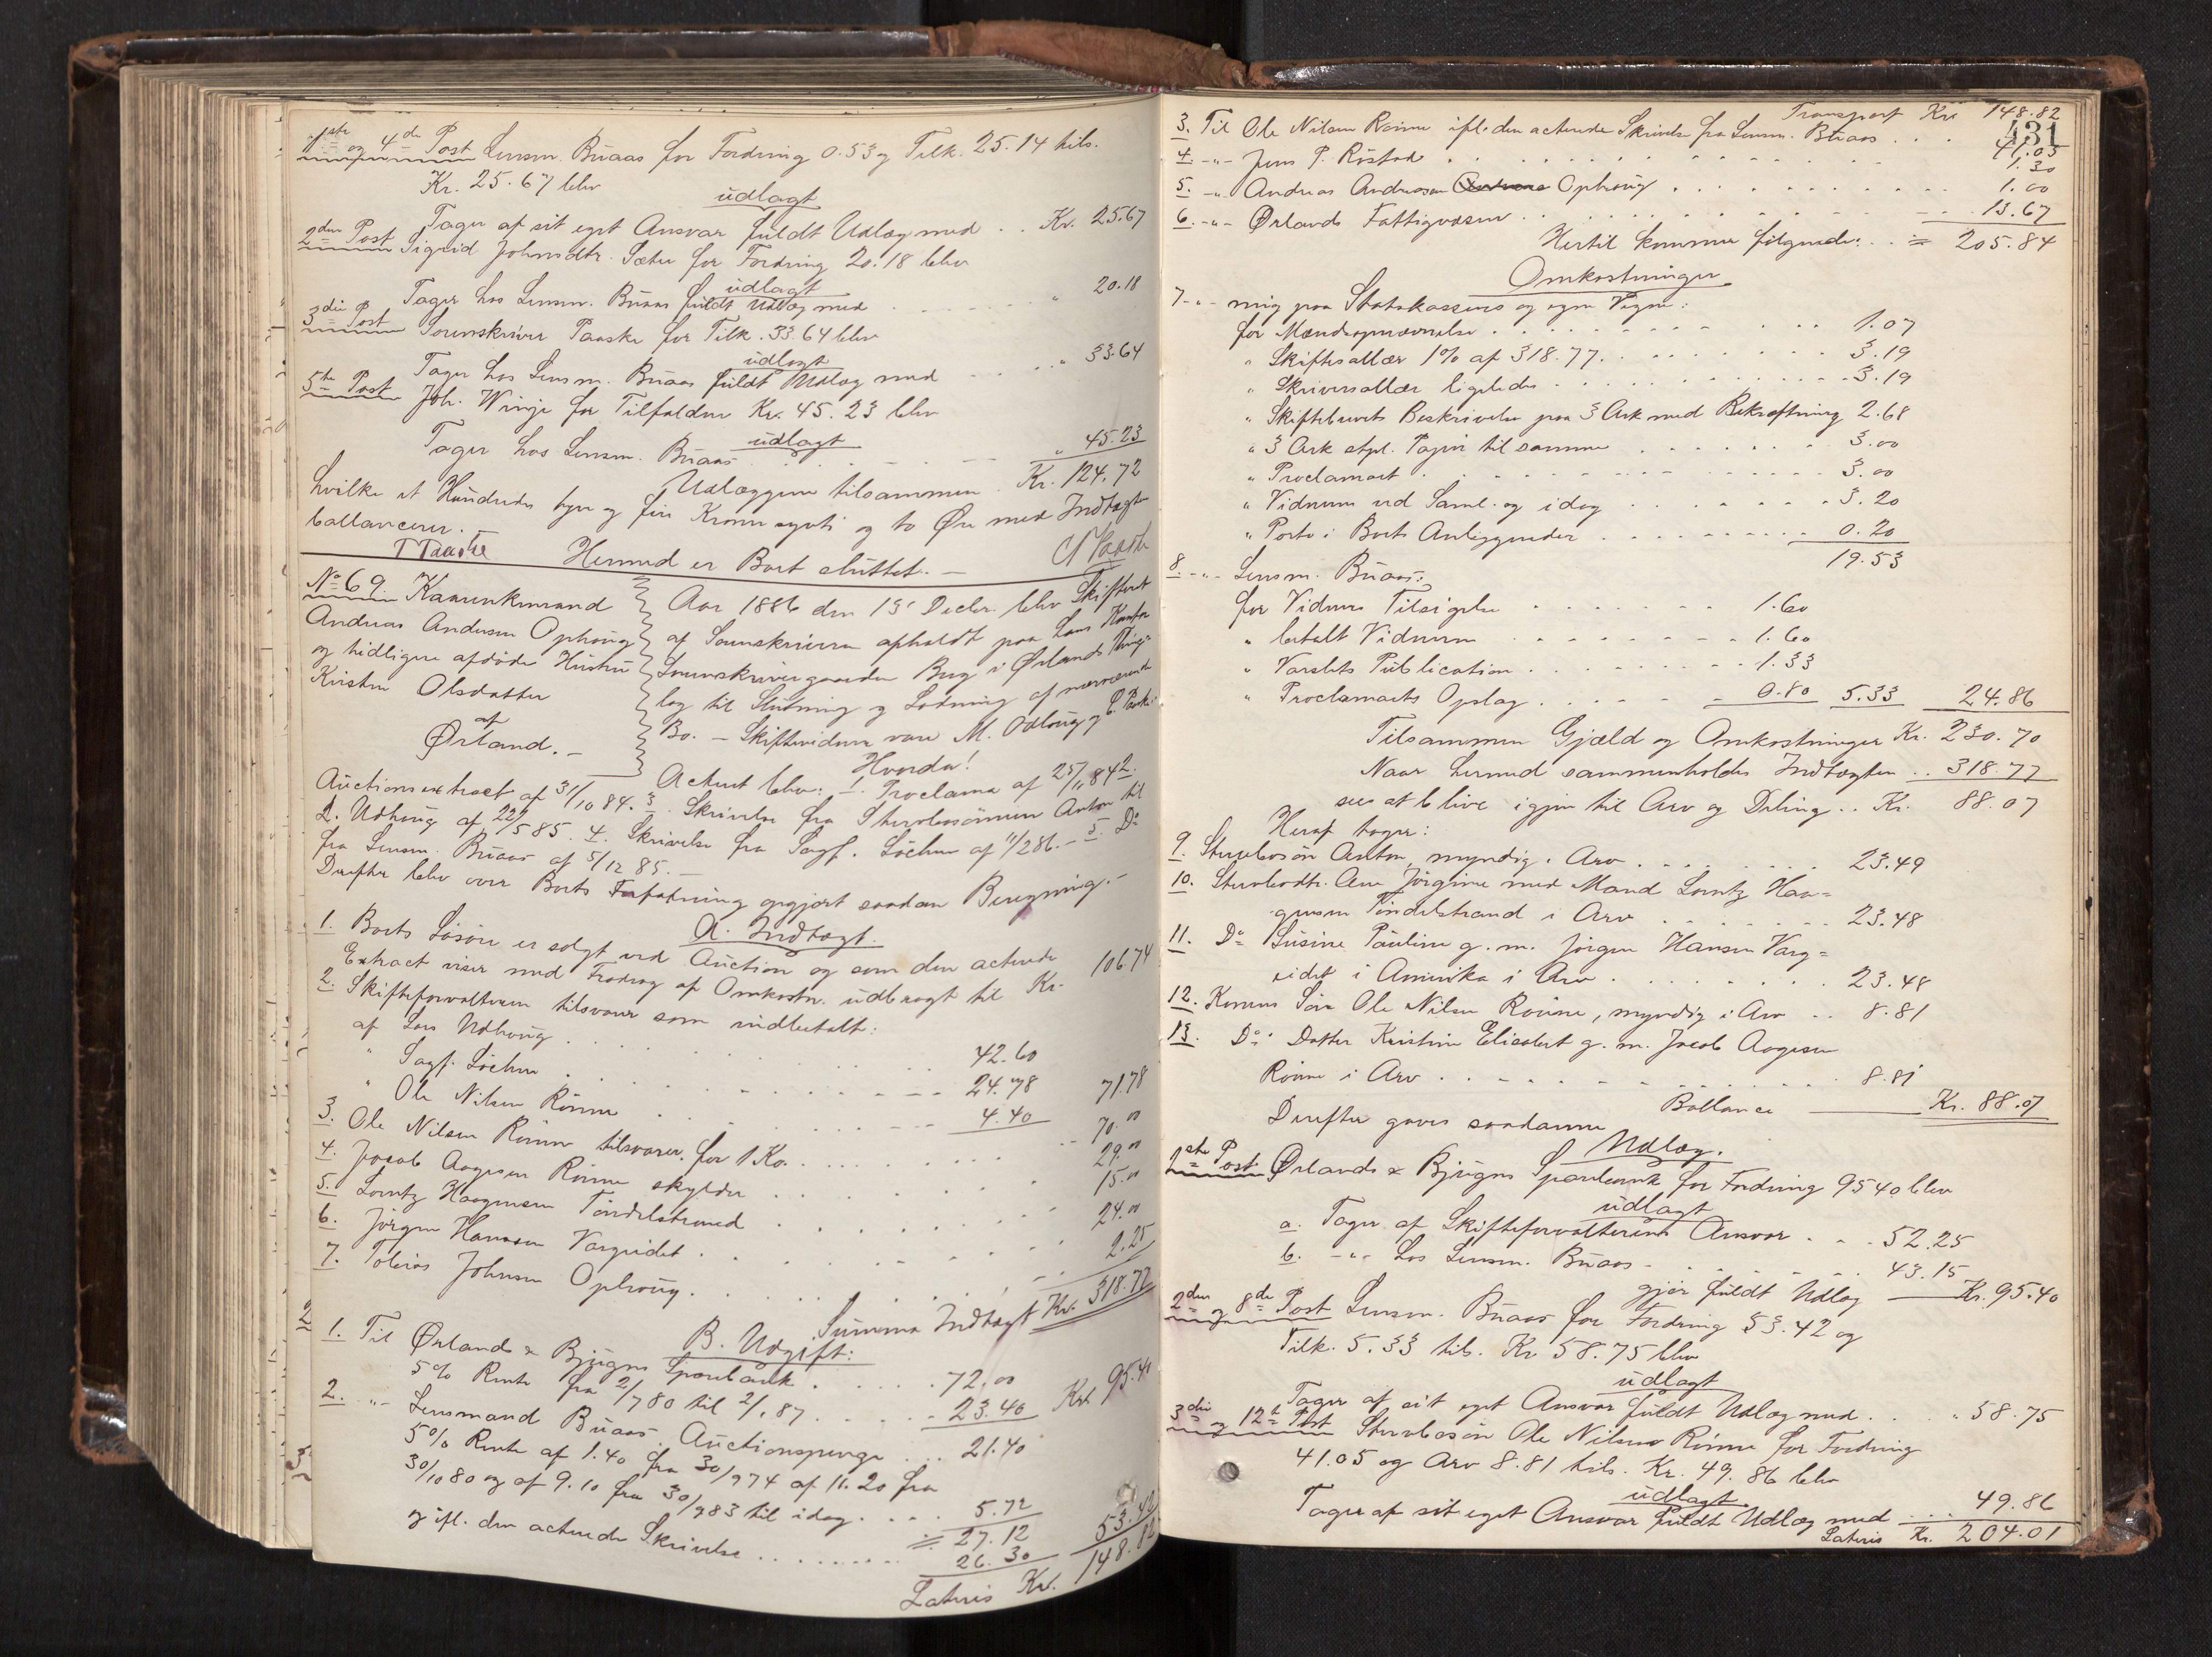 1ste og 4de Post Lensm. Buaas for Fordring 0.53 og Tilk. 25.14 tils.
Kr. 25.67 blev
udlagt
Tager af sit eget Ansvar fuldt Udlæg med . . Kr. 25.67
2den Post Sigrid Johnsdtr. Sæter for Fordring 20.18 blev
udlagt
Tager hos Lensm. Buaas fuldt Udlæg med " 20.18
3die Post Sorenskriver Paaske for Tilk. 33.64 blev
udlagt
Tager hos Lensm. Buaas fuldt Udlæg med " 33.64
5te Post Joh. Winje for Tilfaldne Kr. 45.23 blev
udlagt
Tager hos Lensm. Buaas " 45.23
Udlæggene tilsammen Kr. 124.72
hvilke et Hundrede tyve og fire Kroner sytti og to Øre med Indtægt
ballancerer.—
Hermed er Boet sluttet.—
No 69. Kaarenkemand
Andreas Andersen Ophoug
og tidligere afdøde Hustru
Kirsten Olsdatter
af
Ørland.—
Aar 1886 den 15 Decbr. blev Skifteret
af Sorenskriveren afholdt paa hans Kontor
Sorenskrivergaarden Brug i Ørlands Thing-
lag til Slutning og Lodning af nærværende
Bo. — Skiftevidner vare M. Odloug og
Hvorda!
Acteret blev: 1. Proclama af 25/11 84 2.
Auctionsextract af 31/10 84. 3. Skrivelse fra Sterbosønnen Anton til
L. Udhoug af 22/5 85. 4. Skrivelse fra Sagf. Löchen af 11/2 86.— 5. Do
fra Lensm. Buaas af 5/12 85.—
Derefter blev over Boets Forfatning opgjort saadan Beregning.—
A. Indtægt.
1. Boets Løsøre er solgt ved Auction og som den acterede
Extract viser med Fradrag af Omkostn. udbragt til Kr. 106.74
2. Skifteforvalteren tilsvarer som indbetalt:
af Lars Udhoug 42.60
" Sagf. Löchen 24.78
" Ole Nilsen Rönne 4.40 71.78
3. Ole Nilsen Rönne tilsvarer for 1 Ko 70.00
4. Jacob Aagesen Rönne skylder 29.00
5. Lorntz Haagensen Töndelstrand 15.00
6. Jörgen Hansen Vargeidet 24.00
7. Tobias Johnsen Ophoug 2.25
Summa Indtægt Kr. 318.77
B. Udgift:
1. Til Ørlands & Bjugns Sparebank 72.00
5% Rente fra 2/7 80 til 2/1 87 23.40 Kr. 95.40
2. -"- Lensmand Buaas. Auctionspenge 21.40
5% Rente af 1.40 fra 30/9 74 af 11.20 fra
30/10 80 og af 9.10 fra 30/9 83 til idag 5.72
= 27.12
og ifl. den acterede Skrivelse 26.30 53.42
Lateris Kr. 148.82
Transport Kr. 148.82
431
3. Til Ole Nilsen Rönne ifl. den acterede Skrivelse fra Lensm. Buaas 41.05
4. -"- Jens P. Röstad 1.30
5. -"- Andreas Andreasen Ophoug 1.00
6. -"- Ørlands Fattigvæsen 13.67
Hertil kommer følgende: = 205.84
Omkostninger
7 -"- mig paa Statskassens og egne Vegne:
for Mændsopnævnelse 1.07
" Skiftesallær 1% af 318.77 3.19
" Skriversallær ligeledes 3.19
" Skiftebrevets Beskrivelse paa 3 Ark med Bekræftning 2.68
" 3 Ark stpl. Papir til samme 3.00
" Proclamaet 3.00
" Vidnerne ved Saml. og idag 3.20
" Porto i Boets Anliggender 0.20
19.53
8. -"- Lensm. Buaas:
for Vidners Tilsigelse 1.60
" betalt Vidnerne 1.60
" Varslets Publication 1.33
" Proclamaets Opslag 0.80 5.33 24.86
Tilsammen Gjæld og Omkostninger Kr. 230.70
Naar hermed sammenholdes Indtægten 318.77
sees at blive igjen til Arv og Deling . . Kr. 88.07
Heraf tager:
9. Sterbosøn Anton, myndig i Arv 23.49
10. Sterbodtr. Ane Jørgine med Mand Lorntz Haa=
gensen Töndelstrand i Arv 23.48
11. Do Susine Pauline g. m. Jörgen Hansen Varg=
eidet i Amerika i Arv 23.48
12. Konens Søn Ole Nilsen Rönne, myndig i Arv 8.81
13. Do. Datter Kristine Elisabet g. m. Jacob Aagesen
Rönne i Arv 8.81
Ballance Kr. 88.07
Derefter gaves saadanne
Udlæg.
1ste Post Ørlands & Bjugns Sparebank for Fordring 95.40 blev
udlagt
a. Tager af Skifteforvalterens Ansvar 52.25
b. -"- hos Lensm. Buaas 43.15
gjør fuldt Udlæg Kr. 95.40
2den og 8de Post Lensm. Buaas for Fordring 53.42 og
Tilk. 5.33 tils. Kr. 58.75 blev
udlagt
Tager af sit eget Ansvar fuldt Udlæg med " 58.75
3die og 12te Post Sterbosøn Ole Nilsen Rönne for Fordring
41.05 og Arv 8.81 tils. Kr. 49.86 blev
udlagt
Tager af sit eget Ansvar fuldt Udlæg med 49.86
Lateris Kr. 204.01